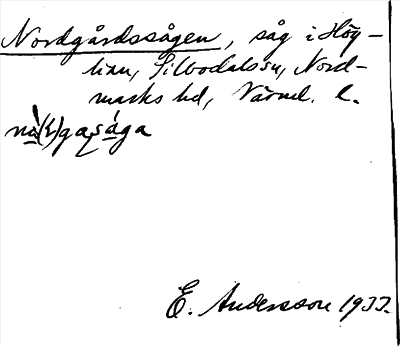 Nordgårdssågen, såg i Hög-
lian, Silbodalssn, Nord-
marks hd, Värml. l.
E. Andersson 1933.